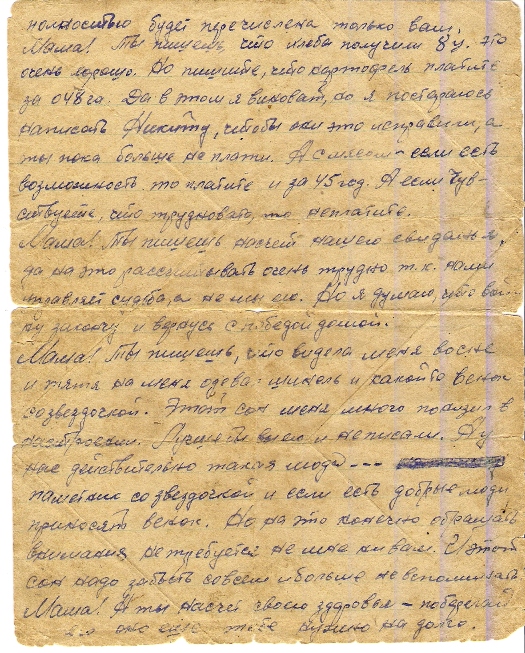 полностью будет перечислена только вам.
Мама! Ты пишешь, что хлеба получили 8 ц. это
очень хорошо. Но пишите, что картофель платите
за 0,48 га. Да в этом я виноват, но я постараюсь
написать Никитину, чтобы они это исправили, а
ты пока больше не плати. А с мясом – если есть
возможность то платите и за 45 год. А если чув-
ствуете, что трудновато, то неплатите.
Мама! Ты пишешь насчёт нашего свиданья,
да на это рассчитывать очень трудно т.к. нами
правляет судьба, а не мы ею. Но я думаю, что вой-
ну закончу и вернусь с победой домой.
Мама! Ты пишешь, что видела меня восне
и тятя на меня одева: шинель и какой то венок
созвездочкой. Этот сон меня много
настроении. Лучше ты бы его и неписали. А у
нас действительно такия люди ---
памятник созвездочкой и если есть добрые люди
приносять венок. Но на это конечно обращать
внимания, не требуется не мне ни вам. И этот
сон надо забыть совсем и больше не вспоминать
Мама! А ты насчёт своего здоровья – поберегай
оно еще тебе нужно на долго.